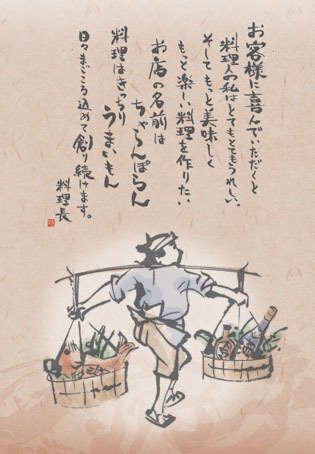 お客様に喜んでいただくと
料理人の私はとてもとてもうれしい。
そしてもっと美味しく
もっと楽しい料理を作りたい
お店の名前は
ちゃらんぽらん
料理はきっちり
うまいもん
日々まごころ込めて創り続けます。
料理長